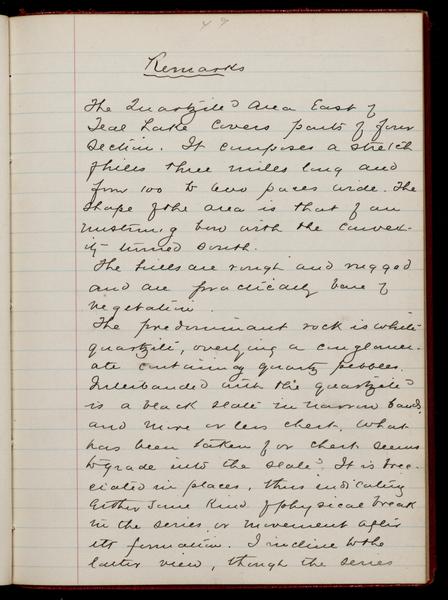 49
Remarks
The Quartzite area East of
Teal Lake covers parts of four
Section. It composes a stretch
of hills three miles long and
from 100 to 600 paces wide. The
shape of the area is that of an
unstrung bow with the convex-
ity turned south.
The hills are rough and rugged
and are practically bare of
vegetation.
The predominant rock is white
quartzite, overlying a conglomer-
ate containing quartz pebbles.
Interbanded with the quartzite
is a black slate in narrow bands,
and more or less chert. What
has been taken for chert seems
to grade into the slate. It is brec-
ciated in places, thus indicating
either some kind of physical break
in the series or movement after
its formation. I incline to the
latter view, though the series